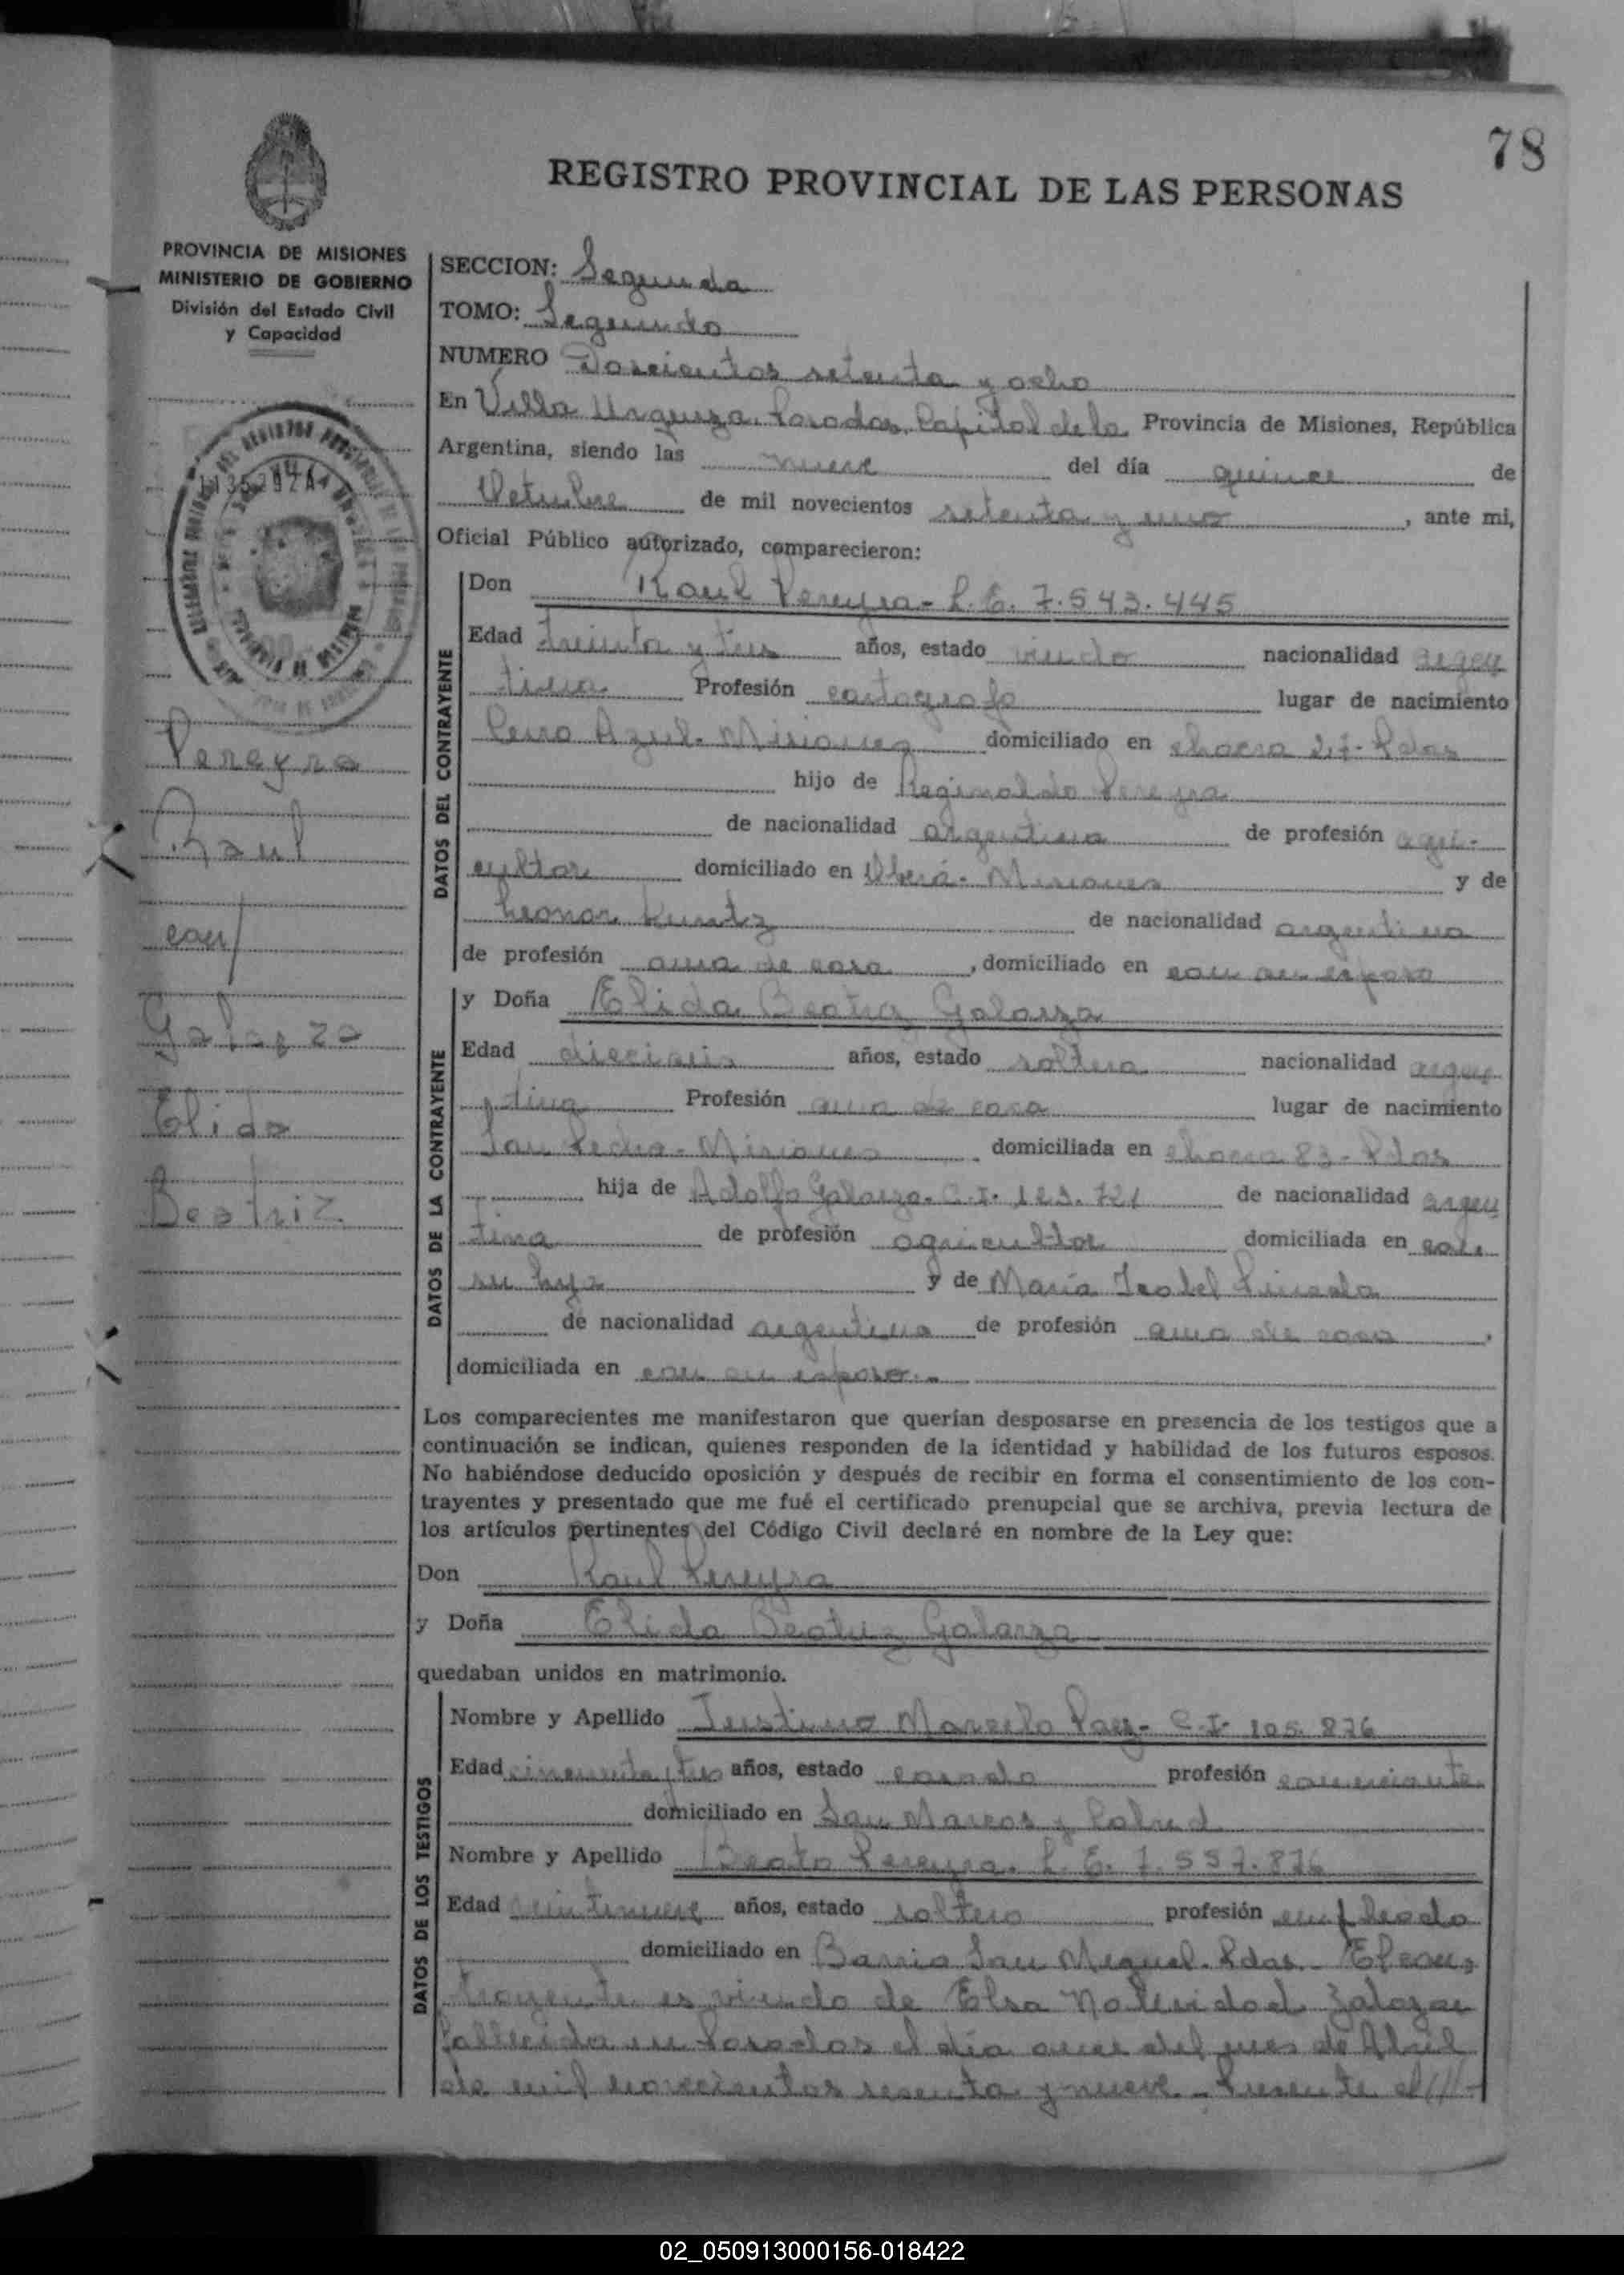 78
REGISTRO PROVINCIAL DE LAS PERSONAS
PROVINCIA DE MISIONES
MINISTERIO DE GOBIERNO
División del Estado Civil
y Capacidad
Pereyra
Raul
con
Galarza
Elida
Beatriz
SECCION: Segunda
TOMO: Segundo
NUMERO Doscientos setenta y ocho
En Villa Urquiza, Posadas, Capital de la Provincia de Misiones, República
Argentina, siendo las nueve del día quince de
Octubre de mil novecientos setenta y uno, ante mi,
Oficial Público autorizado, comparecieron:
DATOS DEL CONTRAYENTE
Don Raul Pereyra - L.E. 7.543.445
Edad treinta y tres años, estado viudo nacionalidad argen
tina Profesión cartografo lugar de nacimiento
Cerro Azul - Misiones domiciliado en chacra - Pdas
hijo de Reginaldo Pereyra
de nacionalidad argentina de profesión agri-
cultor domiciliado en Oberá - Misiones y de
Leonor Kuntz de nacionalidad argentina
de profesión ama de casa, domiciliado en con su esposo
DATOS DE LA CONTRAYENTE
y Doña Elida Beatriz Galarza
Edad dieciseis años, estado soltera nacionalidad argen
tina Profesión ama de casa lugar de nacimiento
San Pedro - Misiones domiciliada en chacra 83 - Pdas
hija de Adolfo Galarza - C.I. 123.721 de nacionalidad argen
tina de profesión agricultor domiciliada en con
su hija y de María Isabel Pineda
de nacionalidad argentina de profesión ama de casa,
domiciliada en con su esposo.-
Los comparecientes me manifestaron que querían desposarse en presencia de los testigos que a
continuación se indican, quienes responden de la identidad y habilidad de los futuros esposos.
No habiéndose deducido oposición y después de recibir en forma el consentimiento de los con-
trayentes y presentado que me fué el certificado prenupcial que se archiva, previa lectura de
los artículos pertinentes del Código Civil declaré en nombre de la Ley que:
Don Raul Pereyra
y Doña Elida Beatriz Galarza
quedaban unidos en matrimonio.
DATOS DE LOS TESTIGOS
Nombre y Apellido Justino Marcelo Paez - C.I. 105.876
Edad cincuenta y tres años, estado casado profesión comerciante
domiciliado en San Marcos y Cabred
Nombre y Apellido Beato Pereyra - L.E. 7.557.876
Edad veintinueve años, estado soltero profesión empleado
domiciliado en Barrio San Miguel - Pdas - El con
trayente es viudo de Elsa Natividad Zalazar
fallecida en Posadas el día once del mes de Abril
de mil novecientos sesenta y nueve - Presente el ///-
02_050913000156-018422